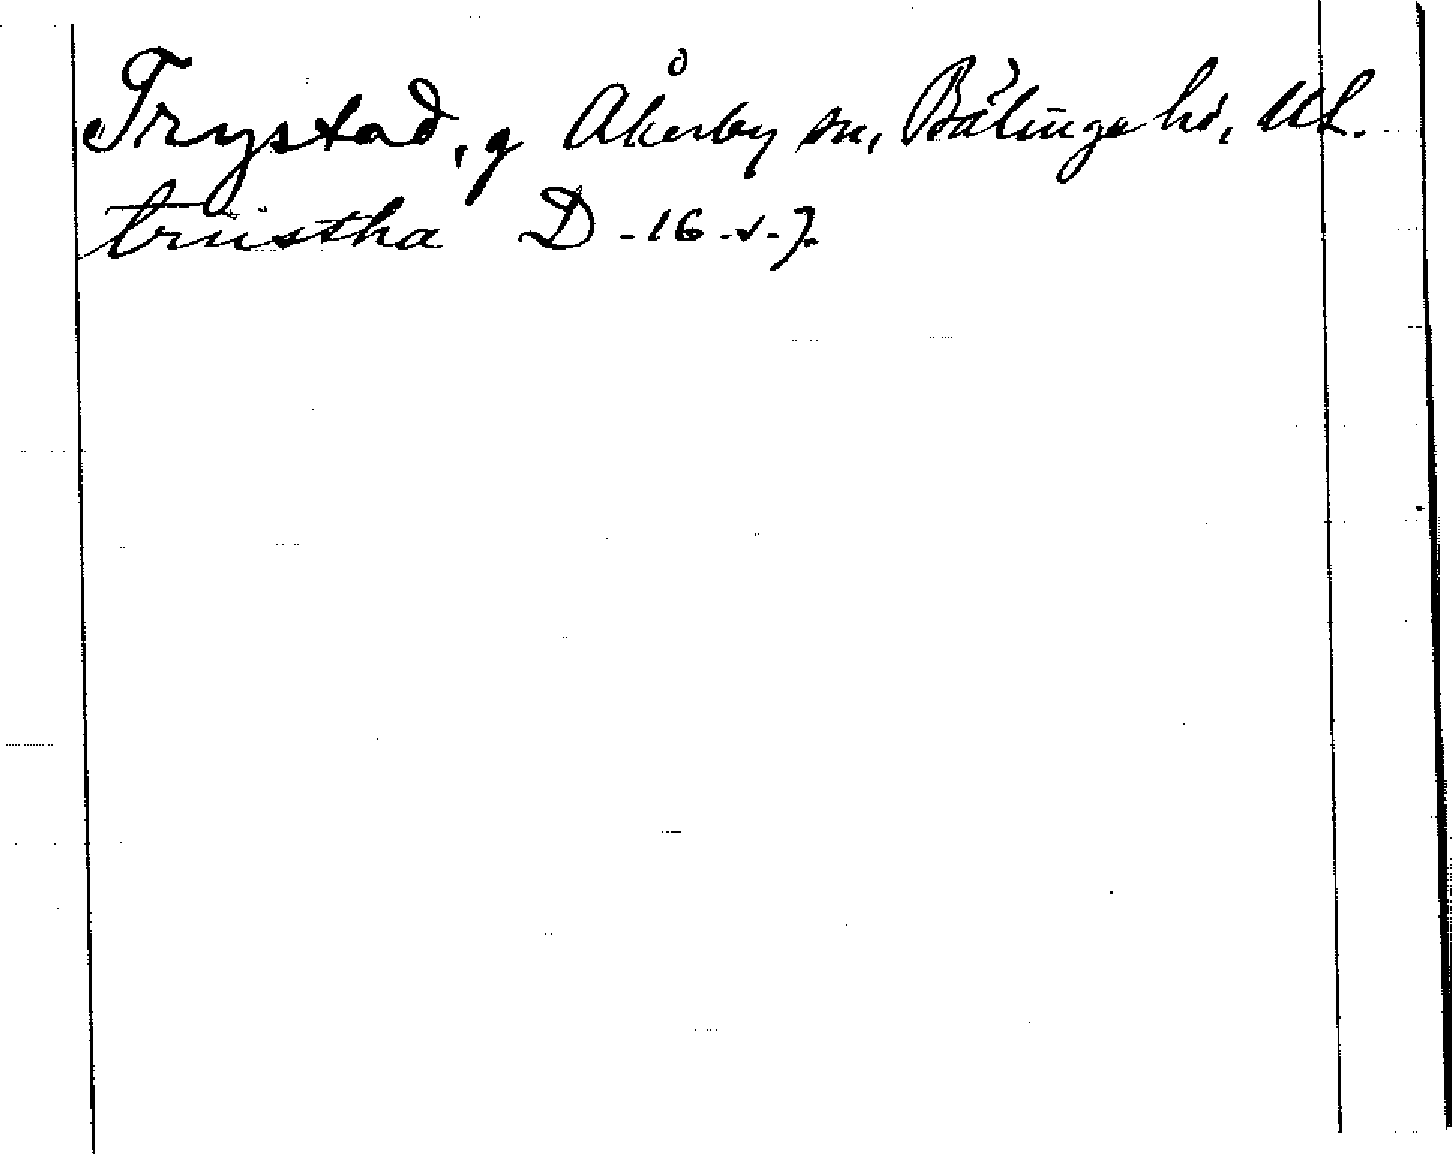 Trystad, g Åkerby sn, Bälinge hd, Ul.
truistha D-16.v.7.